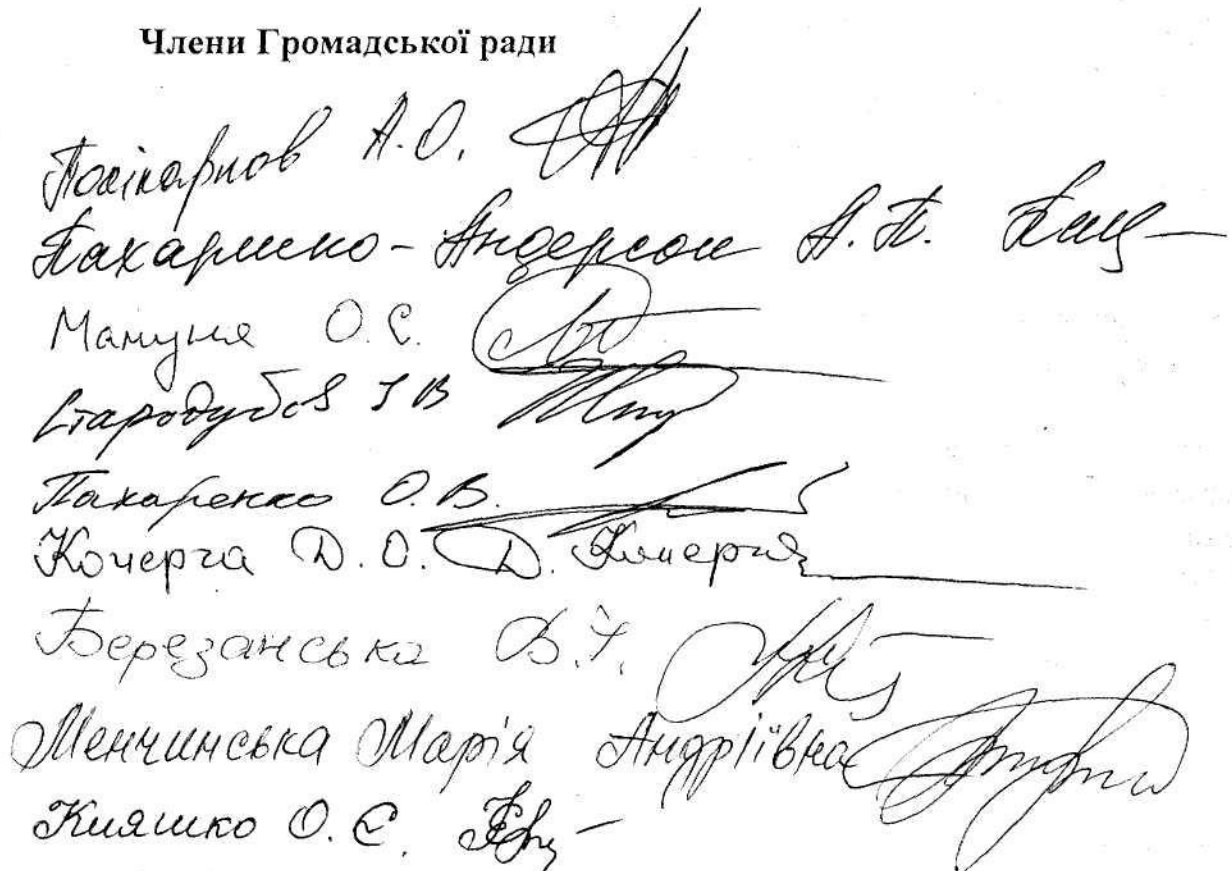 Члени Громадської ради
Полікарпов А.О.
Пахаренко-Андерсон А.П.
Мануня О.Є.
Стародубов І В
Пахаренко О.В.
Кочерга Д.О. Д. Кочерга
Березанська В.
Менчинська Марія Андріївна
Кияшко О.Є.